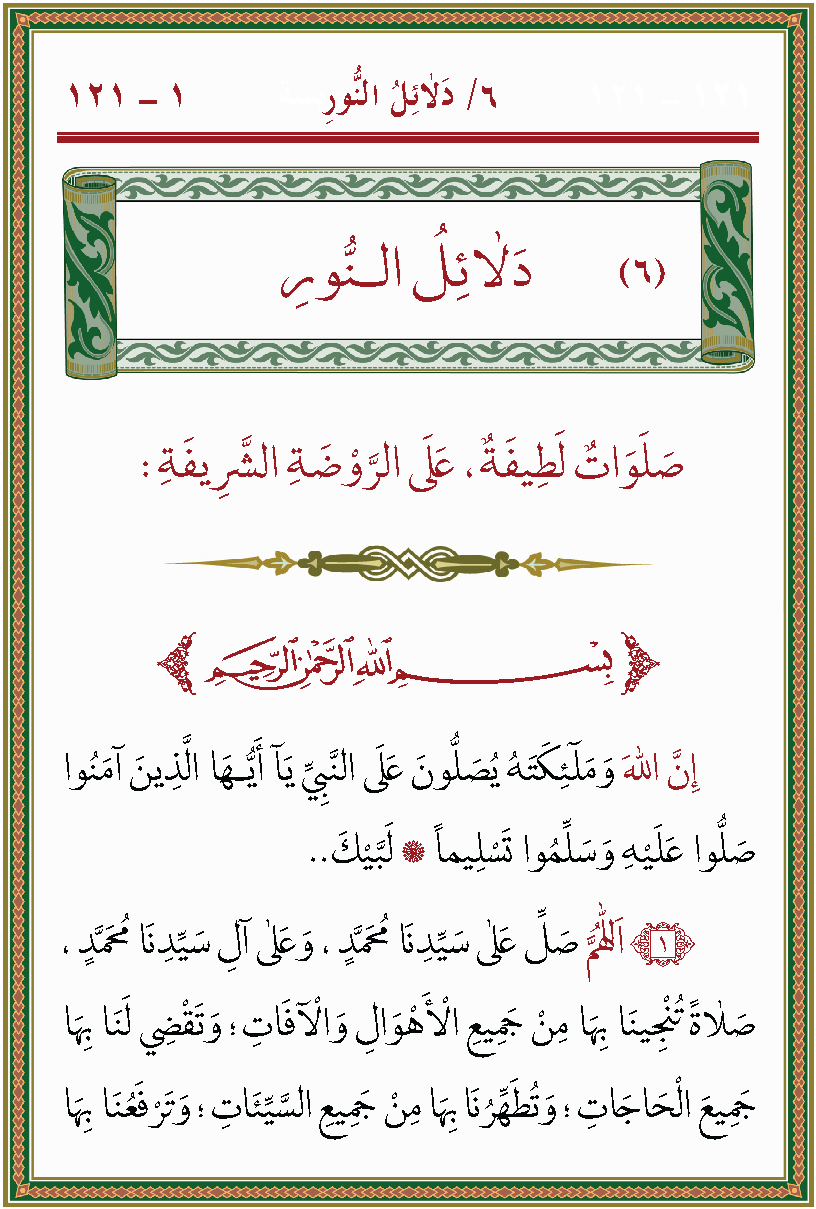 ٦/ دَلَائِلُ النُّورِ ١ – ١٢١
(٦) دَلَائِلُ النُّورِ
صَلَوَاتٌ لَطِيفَةٌ، عَلَى الرَّوْضَةِ الشَّرِيفَةِ :
بِسْمِ اللهِ الرَّحْمٰنِ الرَّحِيمِ
إِنَّ اللهَ وَمَلَٓئِكَتَهُ يُصَلُّونَ عَلَى النَّبِيِّ يَآ أَيُّهَا الَّذِينَ آمَنُوا
صَلُّوا عَلَيْهِ وَسَلِّمُوا تَسْلِيماً * لَبَّيْكَ..
١ اَللّٰهُمَّ صَلِّ عَلٰى سَيِّدِنَا مُحَمَّدٍ ، وَعَلٰى آلِ سَيِّدِنَا مُحَمَّدٍ ،
صَلَاةً تُنْجِينَا بِهَا مِنْ جَمِيعِ الْأَهْوَالِ وَالْآفَاتِ ؛ وَتَقْضِي لَنَا بِهَا
جَمِيعَ الْحَاجَاتِ ؛ وَتُطَهِّرُنَا بِهَا مِنْ جَمِيعِ السَّيِّئَاتِ ؛ وَتَرْفَعُنَا بِهَا